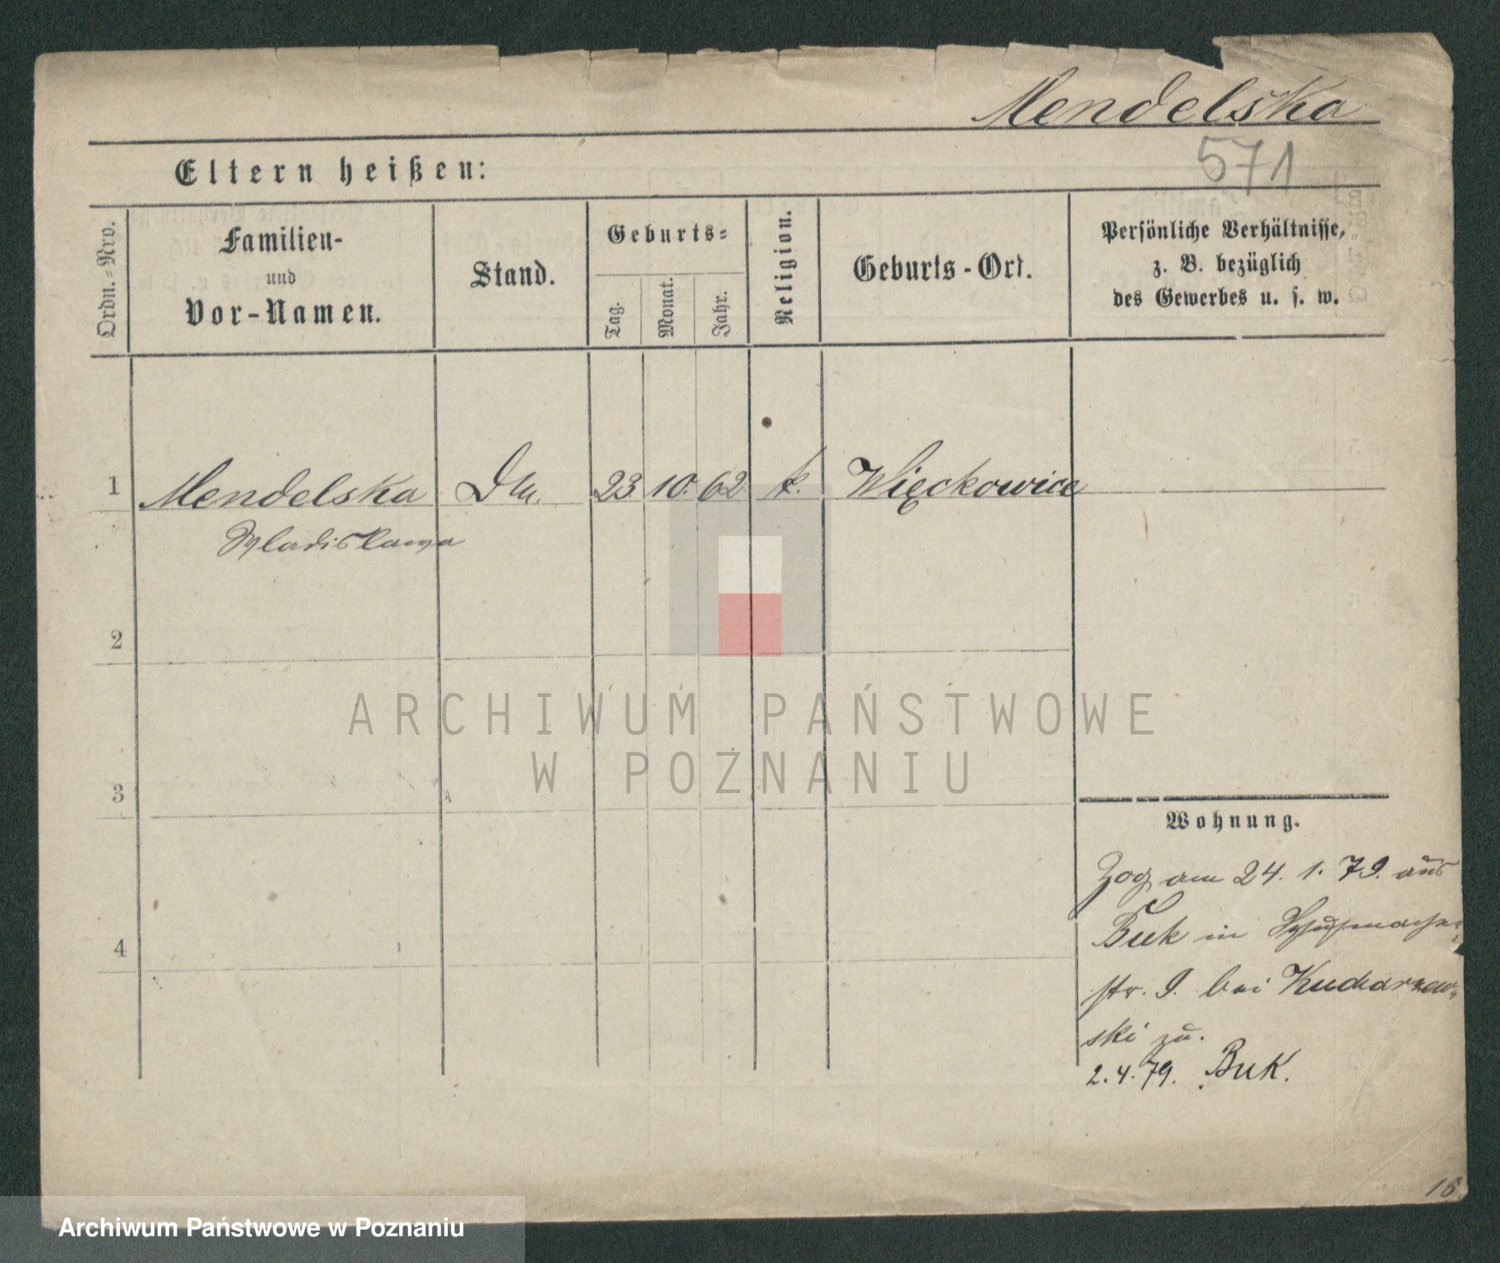 Mendelska
571
Eltern heißen:
Ordn.-Nro.
Familien-
und
Vor-Namen.
Stand.
Geburts-
Tag.
Monat.
Jahr.
Religion.
Geburts-Ort.
Persönliche Verhältnisse,
z. B. bezüglich
des Gewerbes u. s. w.
1 Mendelska 23 10. 62 k. Więckowice
Wladislawa
2
3
4
ARCHIWUM PAŃSTWOWE
W POZNANIU
Wohnung.
Zog am 24. 1. 79. aus
Buk in Schuhmacher
str. 9. bei Kucharzew-
ski zu.
2. 4. 79. Buk.
18
Archiwum Państwowe w Poznaniu